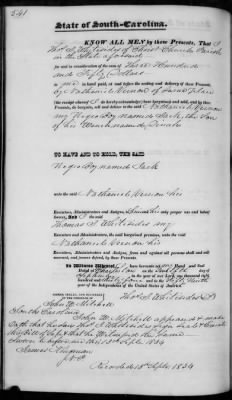 State of South-Carolina.
KNOW ALL MEN by these Presents, That I
Thos. S. Whitesides of Christ Church Parish
in the State aforesaid
for and in consideration of the sum of Three Hundred
and Fifty Dollars
to me in hand paid, at and before the sealing and delivery of these Presents,
by Nathaniel Venning of Same Place
(the receipt whereof I do hereby acknowledge) have bargained and sold, and by these
Presents, do bargain, sell and deliver to the said Nathaniel Venning
my Negro Boy named Jack, the Son
of his Wench named
TO HAVE AND TO HOLD, THE SAID
Negro Boy named Jack
unto the said Nathaniel Venning his
Executors, Administrators and Assigns, to his and their only proper use and behoof
forever. And I the said
Thomas S. Whitesides my
Executors and Administrators, the said bargained premises, unto the said
Nathaniel Venning his
Executors, Administrators and Assigns, from and against all persons shall and will
warrant, and forever defend by these Presents.
In Witness Whereof, I have hereunto set my Hand and Seal
Dated at Charleston on the
day of in the year of our Lord, one thousand eight
hundred and thirty four and in the fifty Ninth
year of the Independence of the United States of America.
SIGNED, SEALED, AND DELIVERED
IN THE PRESENCE OF
Thos. S. Whitesides
John W. Mitchell
So. Carolina
John W. Mitchell appeared & made
Oath that he saw Thos. S. Whitesides sign Seal &
this Bill of Sale & that he Witnessed the Same
Sworn to before me this 18 Sept. 1834
James Kingman
Recorded 18 Sept. 1834